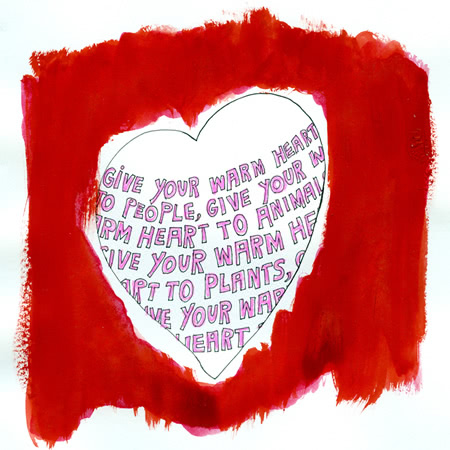 GIVE YOUR WARM HEART
TO PEOPLE, GIVE YOUR W
ARM HEART TO ANIMAL
GIVE YOUR WARM HE
ART TO PLANTS, G
IVE YOUR WAR
HEART